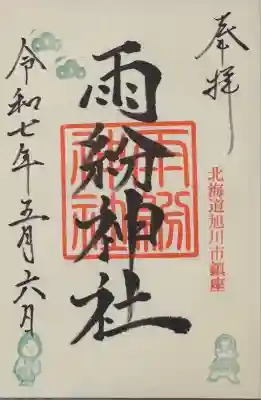 奉拝
北海道旭川市鎮座
雨紛神社
令和七年五月六日